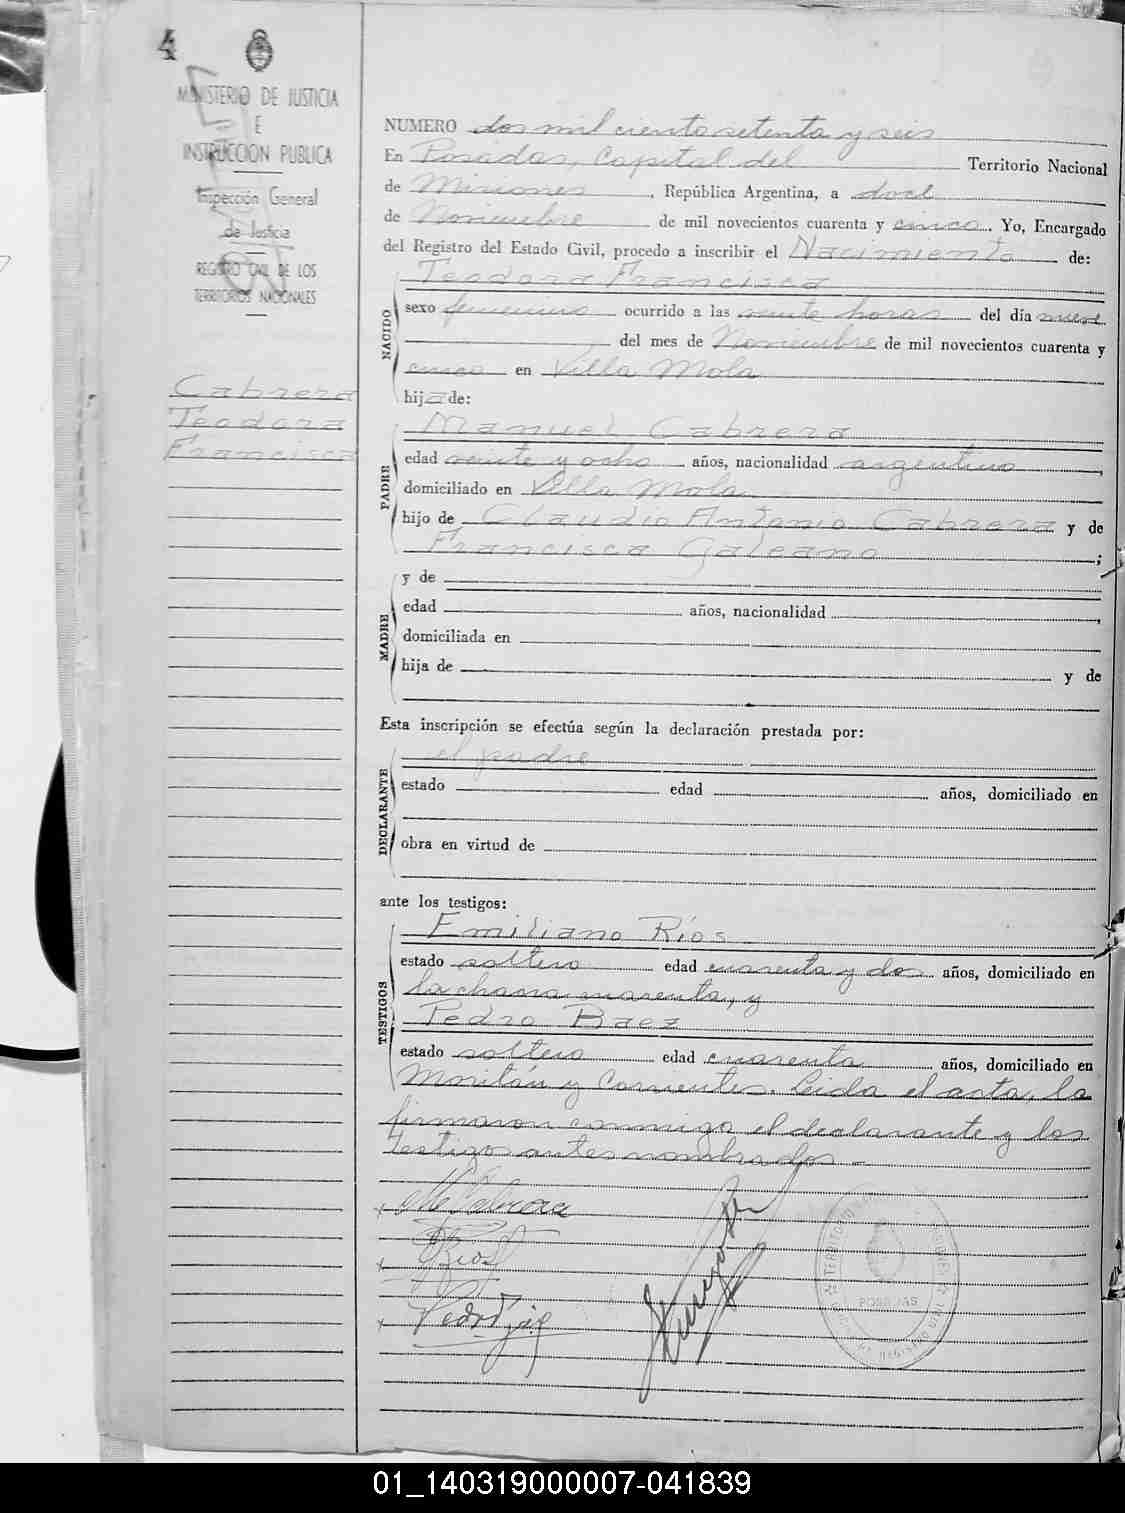 4
MINISTERIO DE JUSTICIA
E
INSTRUCCION PUBLICA
Inspección General
de Justicia
REGISTRO CIVIL DE LOS
TERRITORIOS NACIONALES
Cabrera
Teodora
Francisca
NUMERO dos mil ciento setenta y seis
En Posadas, Capital del Territorio Nacional
de Misiones, República Argentina, a doce
de Noviembre de mil novecientos cuarenta y cinco. Yo, Encargado
del Registro del Estado Civil, procedo a inscribir el Nacimiento de:
Teodora Francisca
NACIDO
sexo femenino ocurrido a las veinte horas del día nueve
del mes de Noviembre de mil novecientos cuarenta y
cinco en Villa Mola
hija de:
Manuel Cabrera
PADRE
edad veinte y ocho años, nacionalidad argentino,
domiciliado en Villa Mola
hijo de Claudio Antonio Cabrera y de
Francisca Galeano;
y de
MADRE
edad años, nacionalidad,
domiciliada en
hija de y de
Esta inscripción se efectúa según la declaración prestada por:
el padre
DECLARANTE
estado edad años, domiciliado en
obra en virtud de
ante los testigos:
Emiliano Ríos
TESTIGOS
estado soltero edad cuarenta y dos años, domiciliado en
la chacra cuarenta, y
Pedro Baez
estado soltero edad cuarenta años, domiciliado en
y Corrientes. Leida el acta, la
firmaron conmigo el declarante y los
testigos antes nombrados.-
M Cabrera
Rios
POSADAS
01_140319000007-041839